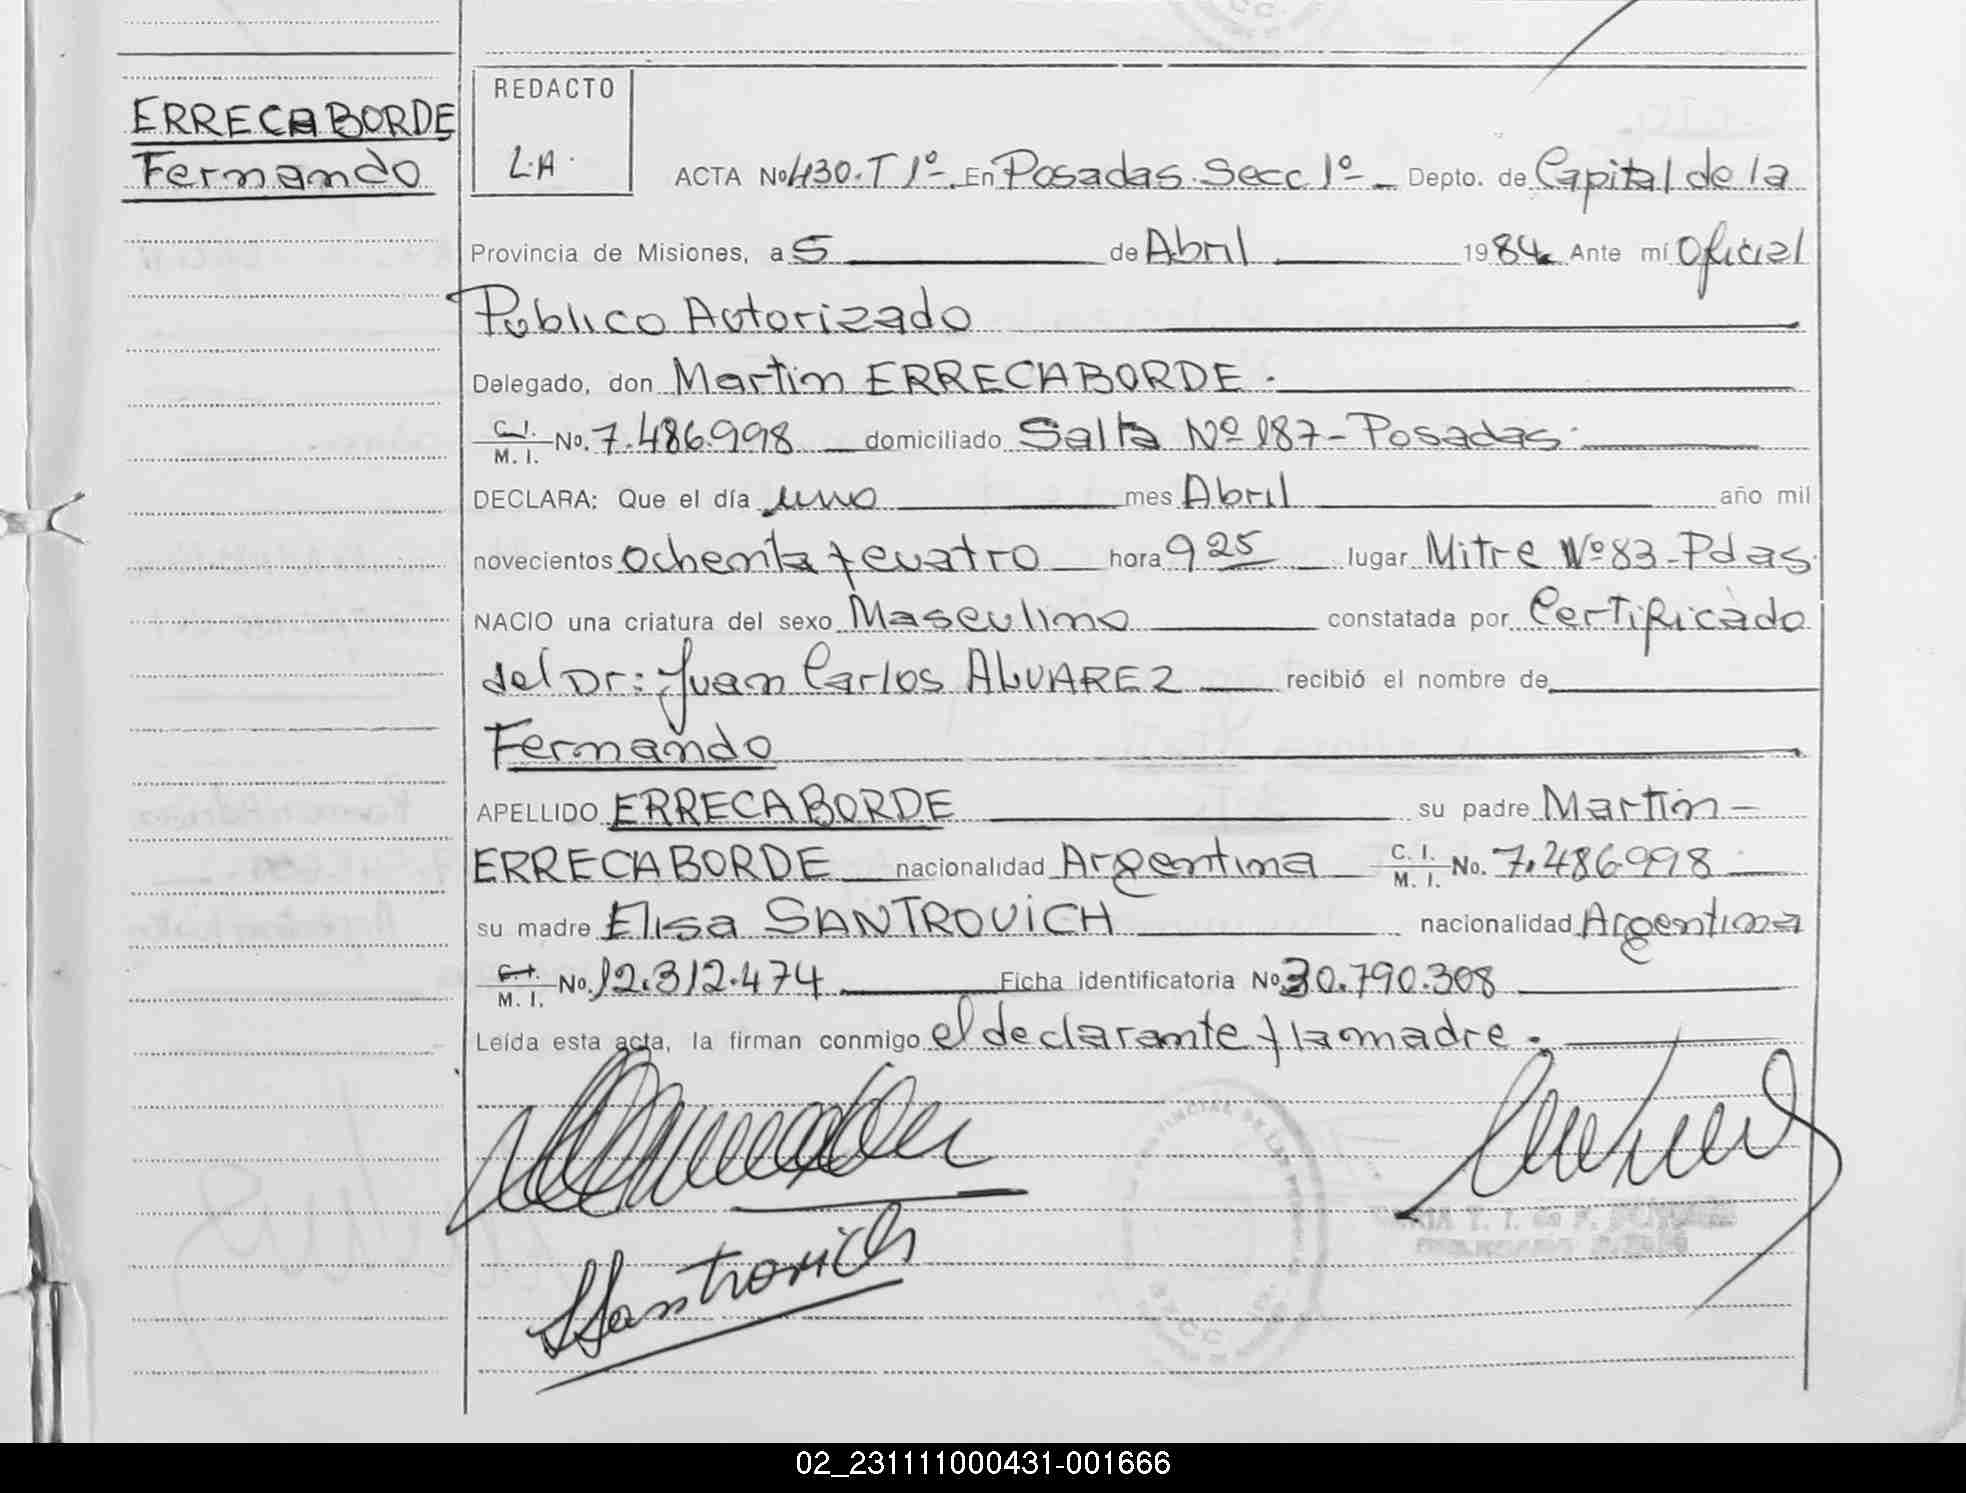 ERRECABORDE
Fernando
REDACTO
L.A.
ACTA Nº 430. T 1º. En Posadas. Secc 1º - Depto. de Capital de la
Provincia de Misiones, a 5 de Abril 1984. Ante mí Oficial
Público Autorizado
Delegado, don Martin ERRECABORDE.
C. I. / M. I. No. 7.486.998 domiciliado Salta Nº 187 - Posadas.
DECLARA: Que el día uno mes Abril año mil
novecientos ochenta y cuatro hora 9 25 lugar Mitre Nº 83 - Pdas.
NACIO una criatura del sexo Masculino constatada por Certificado
del Dr: Juan Carlos ALVAREZ recibió el nombre de
Fernando
APELLIDO ERRECABORDE su padre Martin -
ERRECABORDE nacionalidad Argentina C. I. / M. I. No. 7.486.998
su madre Elisa SANTROVICH nacionalidad Argentina
C. I. / M. I. No. 12.312.474 Ficha identificatoria Nº 30.790.308
Leída esta acta, la firman conmigo el declarante y la madre.
Santrovich
02_231111000431-001666